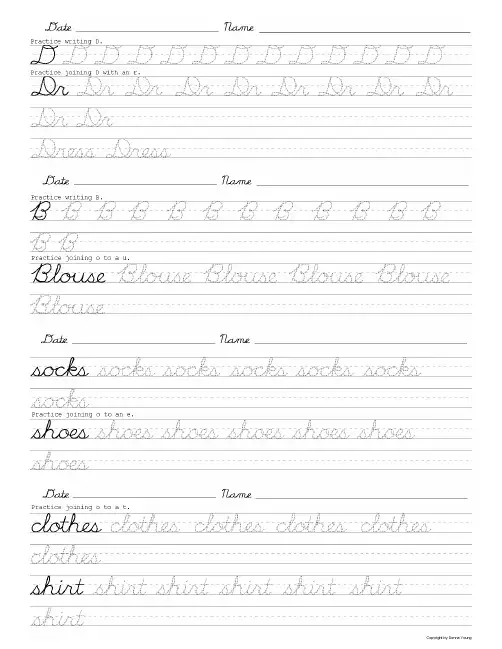 Date Name
Practice writing D.
D D D D D D D D D D D D D
Practice joining D with an r.
Dr Dr Dr Dr Dr Dr Dr Dr Dr
Dr Dr
Dress Dress
Date Name
Practice writing B.
B B B B B B B B B B B B
B B
Practice joining o to a u.
Blouse Blouse Blouse Blouse Blouse
Blouse
Date Name
socks socks socks socks socks socks
socks
Practice joining o to an e.
shoes shoes shoes shoes shoes shoes
shoes
Date Name
Practice joining o to a t.
clothes clothes clothes clothes clothes
clothes
shirt shirt shirt shirt shirt shirt
shirt
Copyright by Donna Young